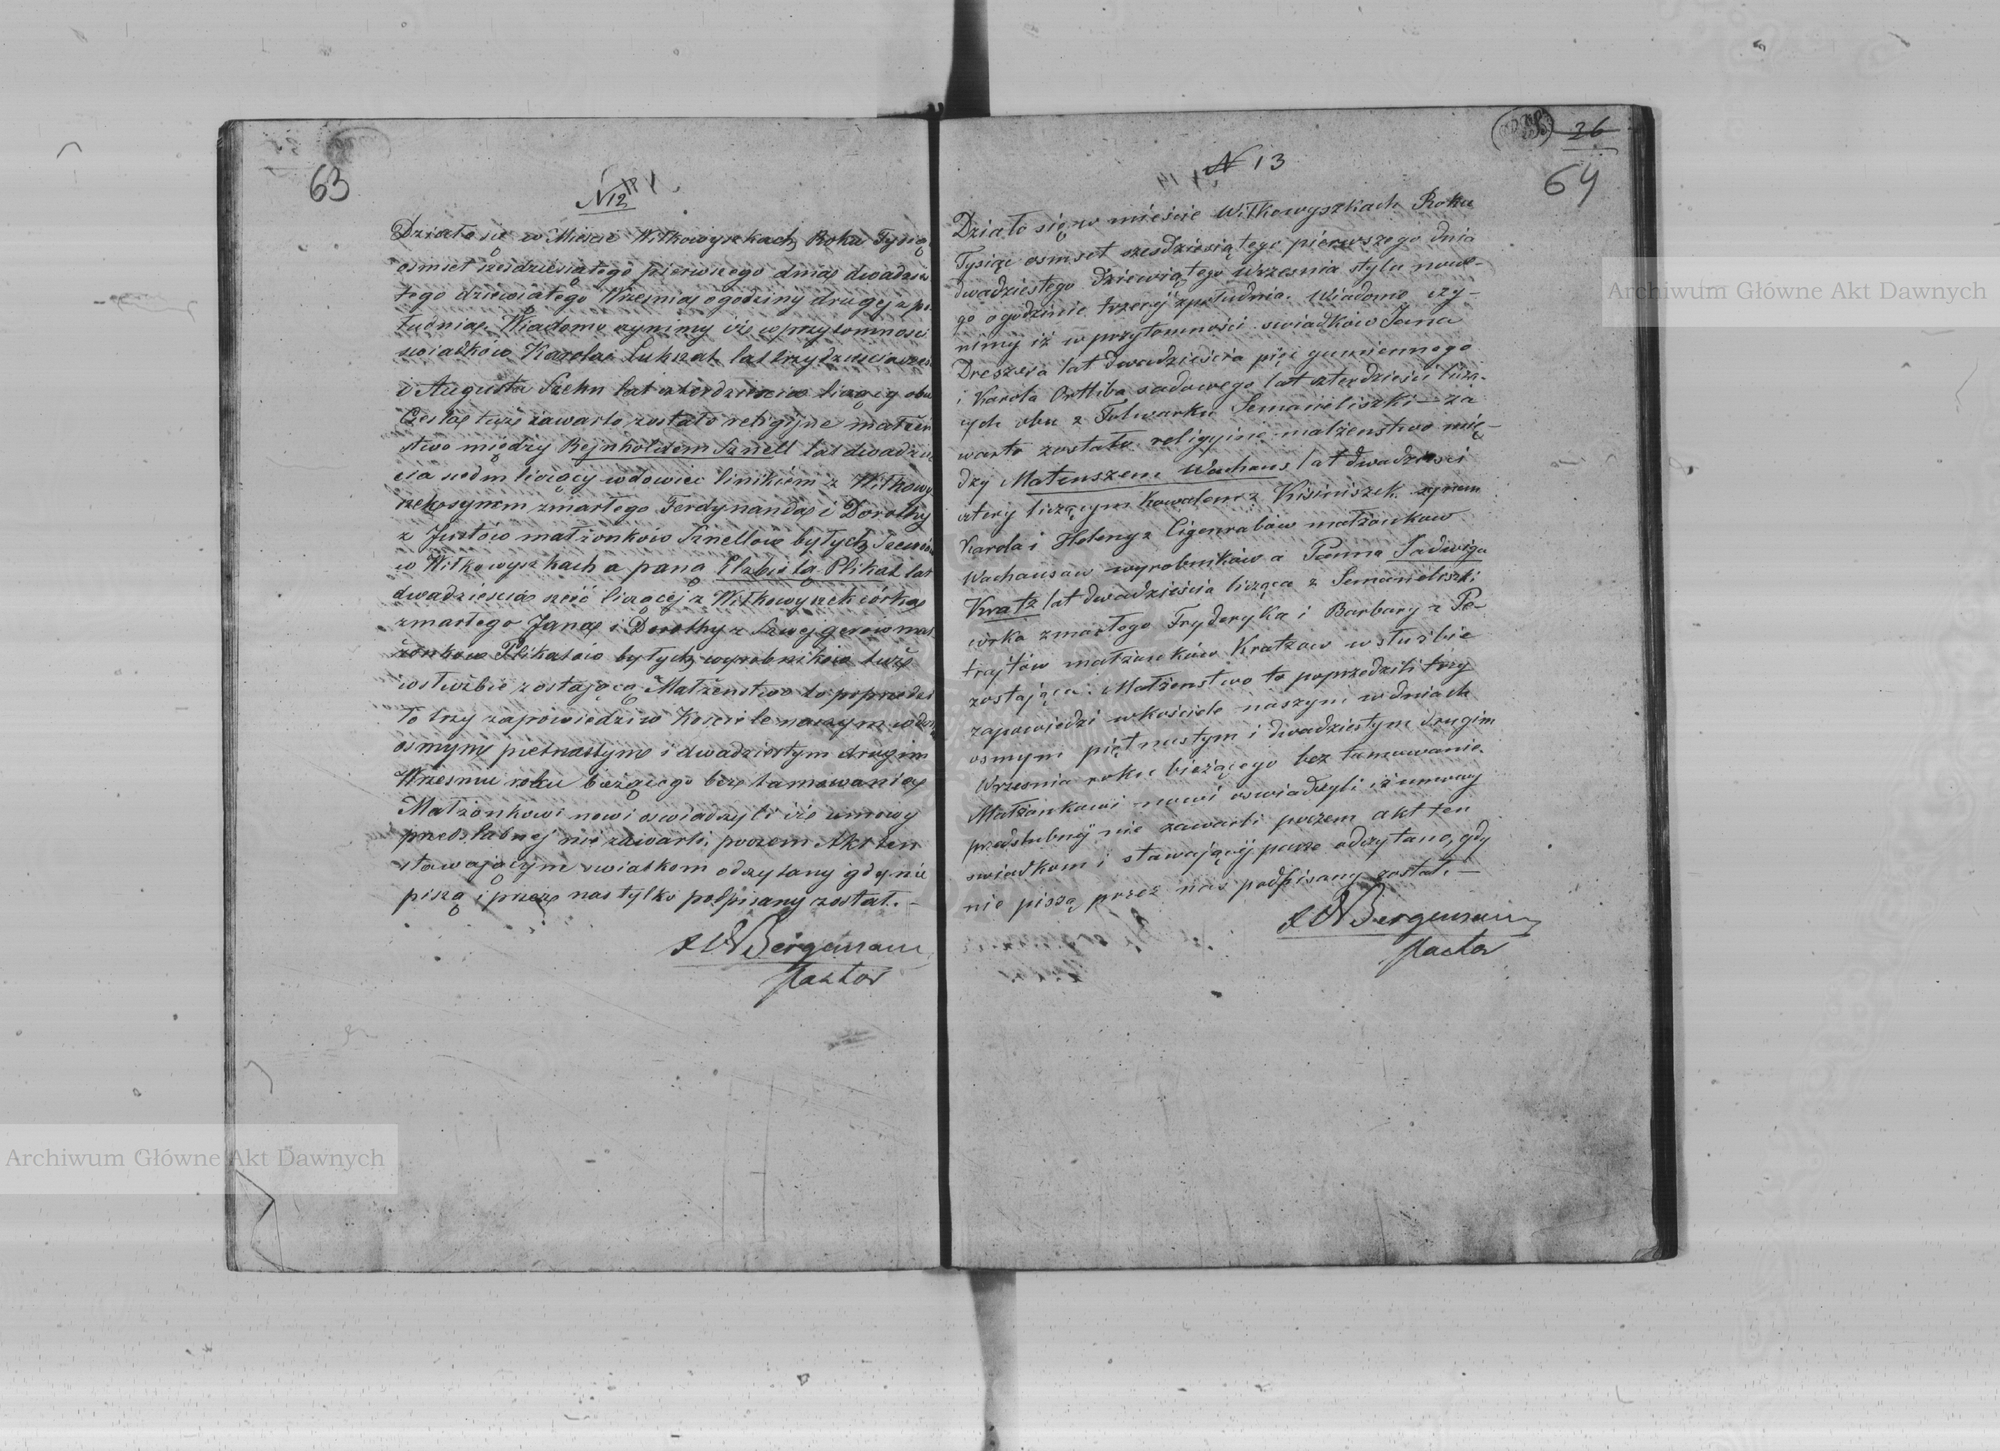 63
N 12
Działo się w Mieście Wiłkowyszkach Roku Tysiąc
ośmset sześdziesiątego pierwszego dnia dwadzies
tego dziewiątego Września o godziny drugej z po
łudnia. Wiadomo czynimy iże w przytomnosci
swiadków Karola Lukszat lat trzydziescia
i Augusta Szehn lat czterdziescia liczący obu
tuże zawarte zostało religijne małżen
stwo między Rejnholdem Sznell lat dwadzie
cia siedm liczący wdowiec z Wiłkowy
szek synem zmarłego Ferdynanda i Dorothy
z Justów małżonków Sznellow byłych
w Wiłkowyszkach a pana Elzbieta Plikat lat
dwadziescia sześć liczącej z Wiłkowyszek córka
zmarłego Jana i Dorothy z Szwejgerow mał
żonkow Plikatow byłych wyrobników tuże
w służbie zostającą Małżenstwo to poprzedzi
ło trzy zapowiedzi w Kosciele naszym w dni
osmym pietnastym i dwadziestym drugim
Wrzesniu roku bieżącego bez tamowania
Małżonkowi nowi oswiadczyli iże umowy
przedslubnej nie zawarli, poczem Akt ten
stawającym swiatkom odczytany gdy nie
piszą i przez nas tylko podpisany został. –
Bergemann
Pastor
26
64
N 13
Działo się w mieście Wiłkowyszkach Roku
Tysiąc osmset szesdziesiątego pierwszego dnia
dwadziestego dziewiątego Wrzesnia stylu nowe-
go o godzinie trzeciy z południa. Wiadomo czy-
nimy iż w przytomności swiadków Jana
Dreszera lat dwadzieścia pięc gumiennego
i Karola Orthiba sadowego lat czterdziesci liczą-
cych obu z Folwarku Semaneliszki – za
warte zostało religyine małzenstwo mię-
dzy Mateuszem Wachaus lat dwadziesci
cztery liczącym kowalem z Kisiniszek synem
Karola i Heleny z Cigenrabow małzonkow
Wachausow wyrobników a Panna Jadwiga
Kratz lat dwadzieścia licząca z Semaneliszki
corka zmarłego Fryderyka i Barbary z Pe-
trajtów małżonków Kratzow w służbie
zostająca. Małżenstwo to poprzedzili trzy
zapowiedzi w kościele naszym w dniach
osmym piętnastym i dwadziestym drugim
Wrzesnia roku bieżącego bez tamowania.
Małżonkowi nowi oswiadczyli iż umowy
przedslubnej nie zawarli poczem akt ten
swiadkom i stawającej parze odczytano, gdy
nie piszą przez nas podpisany został. –
Bergemann
Pastor
Archiwum Główne Akt Dawnych
Archiwum Główne Akt Dawnych